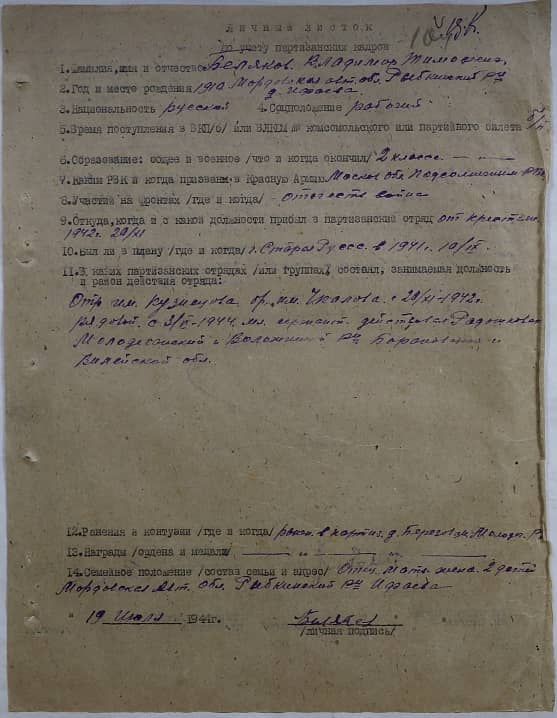 Личный листок
по учету партизанских кадров
1.Фамилия,имя и отчество Беляков Владимир Тимофеев.
2.Год и место рождения 1910 Мордовская авт. об. Рыбкинский р-н
д.
3.Национальность русский 4.Соцположение рабочий
5.Время поступления в ВКП/б/ или ВЛКСМ № комсомольского или партийного билета б/п
6.Образование: общее и военное /что и когда окончил/ 2 класса
7.Каким РВК и когда призван в Красную Армию Москов. об.
8.Участие на фронтах /где и когда/ Отечеств война
9.Откуда,когда и с какой должности прибыл в партизанский отряд от
1942г. 29/XI
10.Был ли в плену /где и когда/ г. Стара Русс. в 1941г.
11.В каких партизанских отрядах /или группах/ состоял, занимаемая должность
и район действия отряда:
Отр. им. Кузнецова бр. им. Чкалова с 29/XI-1942г.
рядовой. с 1944 мл. сержант. действовал
Молодеченский и Воложинский р-н и
Вилейской обл.
12.Ранения и контузии /где и когда/ ранен в партиз. д.
13.Награды /ордена и медали/
14.Семейное положение /состав семьи и адрес/ Отец мать жена 2 детей
Мордовская Авт. обл. Рыбкинский р-н
" 19 Июля 1944г. Беляков
/личная подпись/